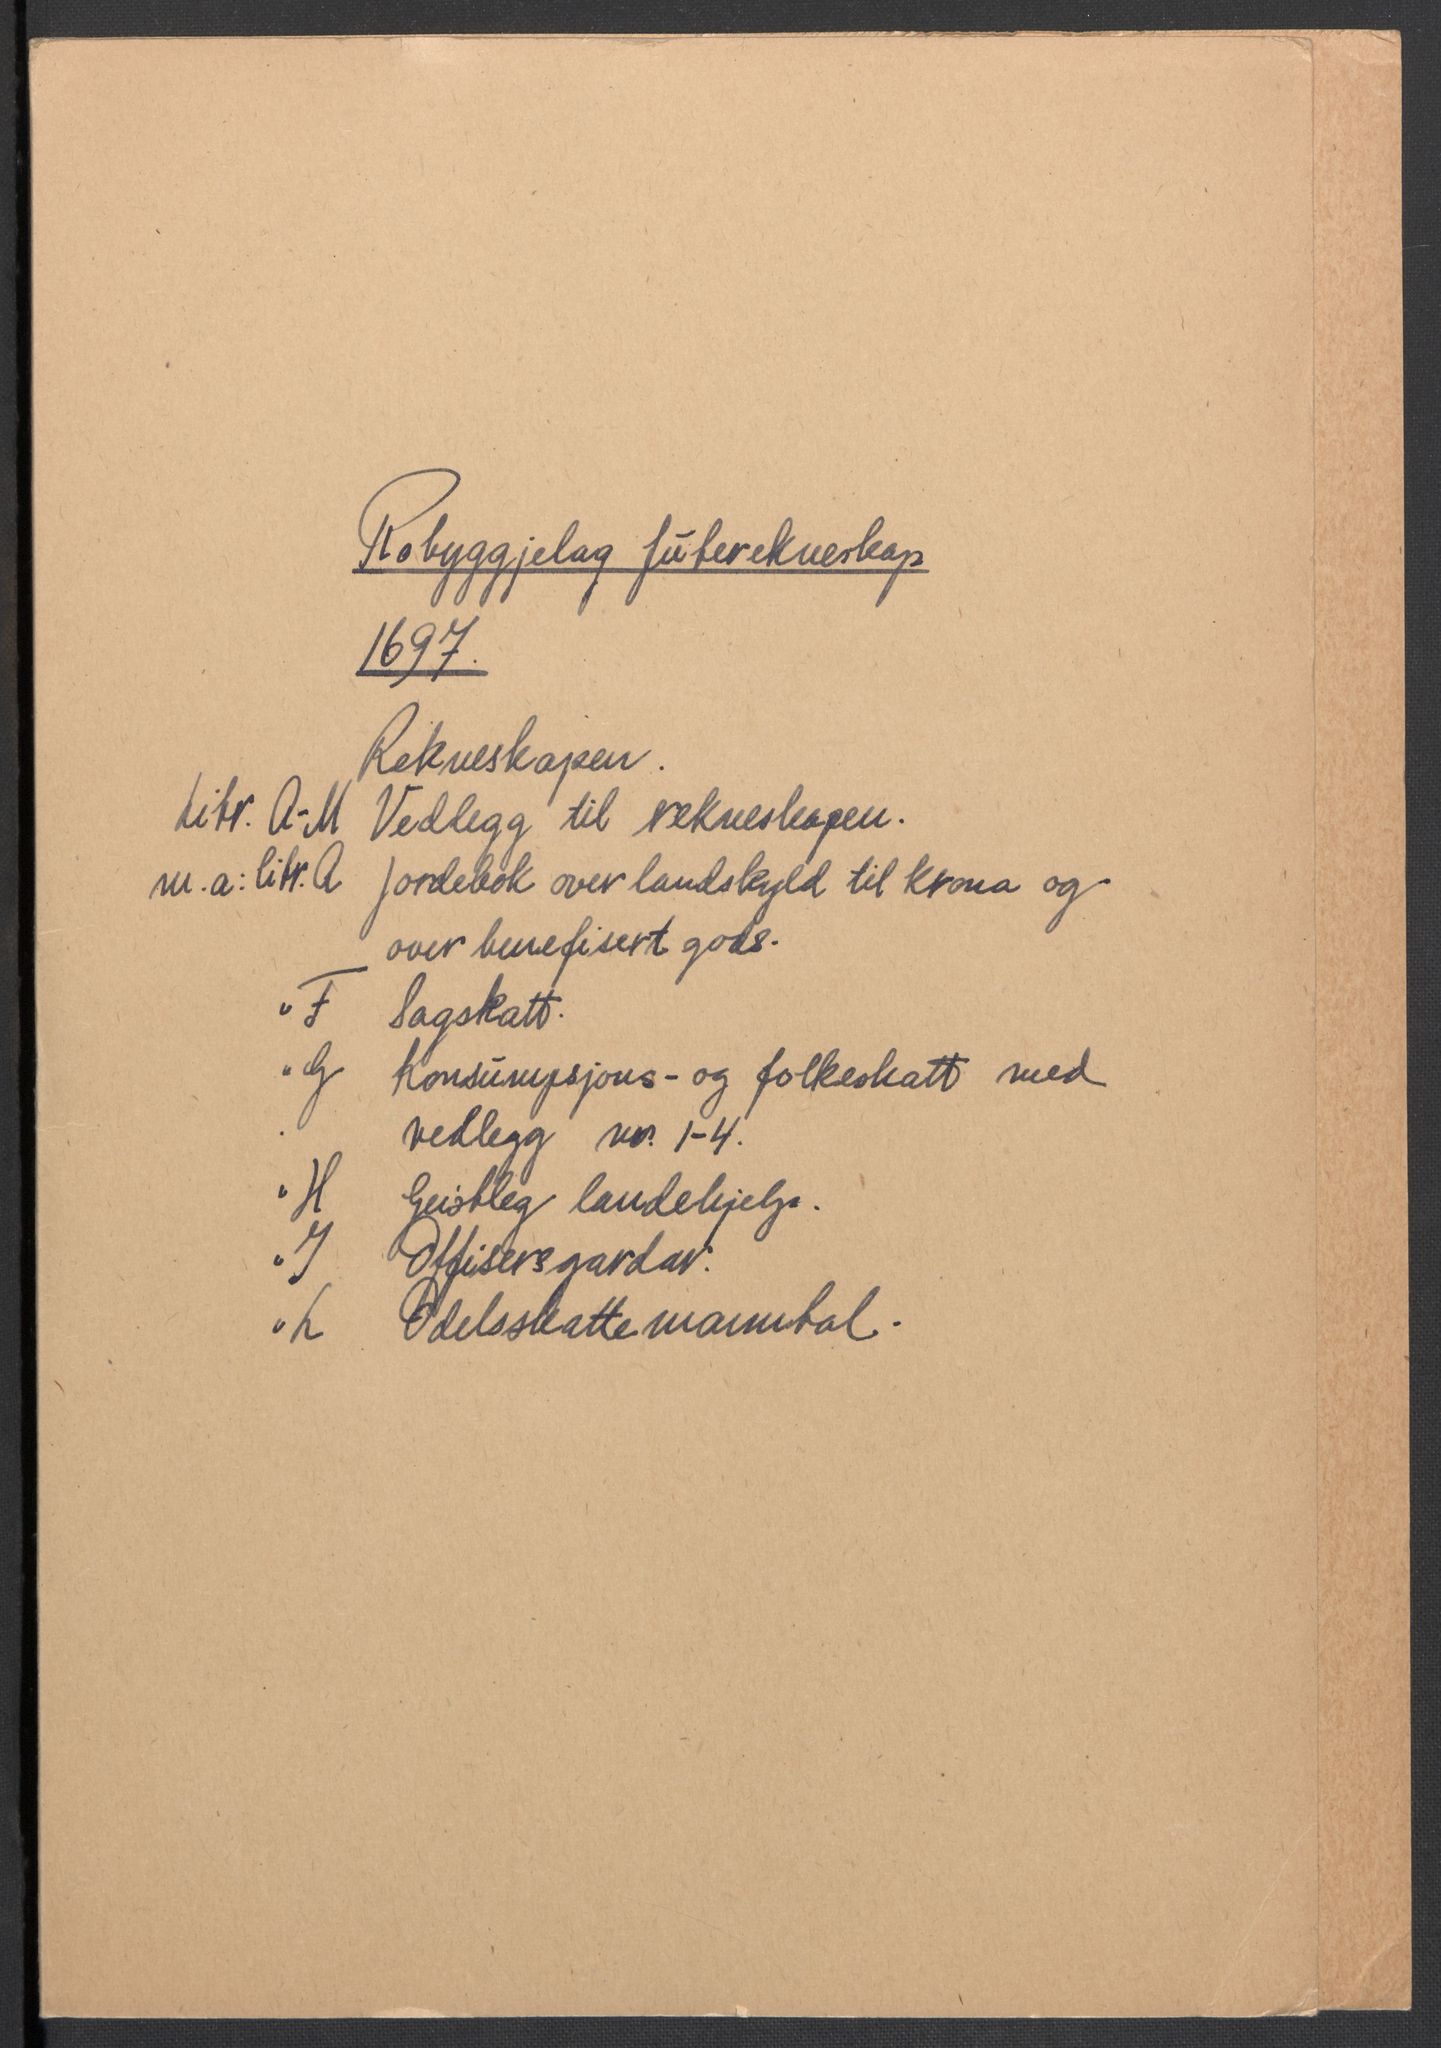 Robyggjelag futerekneskap
1697.
Rekneskapen.
Litr. A-M Vedlegg til rekneskapen.
m.a: litr. A Jordebok over landskyld til krona og
over benefisert gods.
" F Sagskatt.
" G Konsumpsjons- og folkeskatt med
vedlegg nr. 1-4.
" H Geistleg landehjelp.
" J Offisersgardar.
" L Odelsskattemanntal.